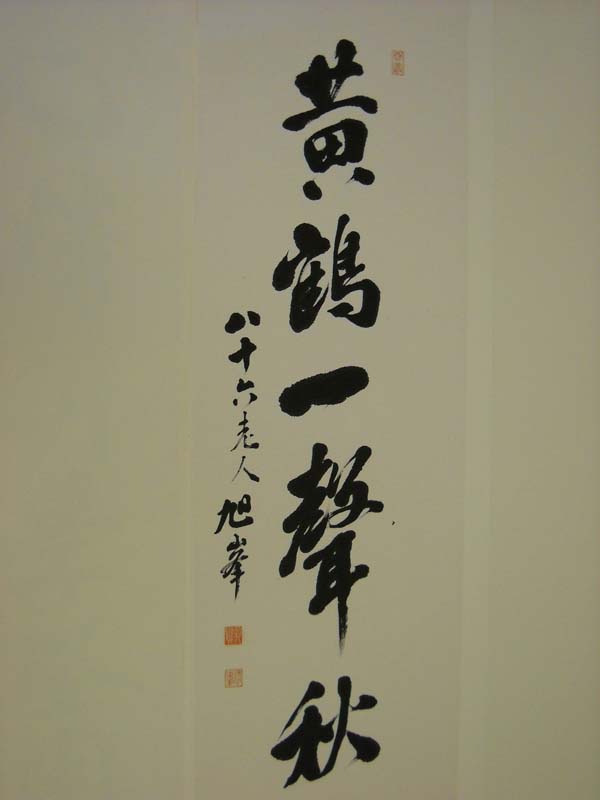 黄鶴一聲秋
八十六老人旭峯